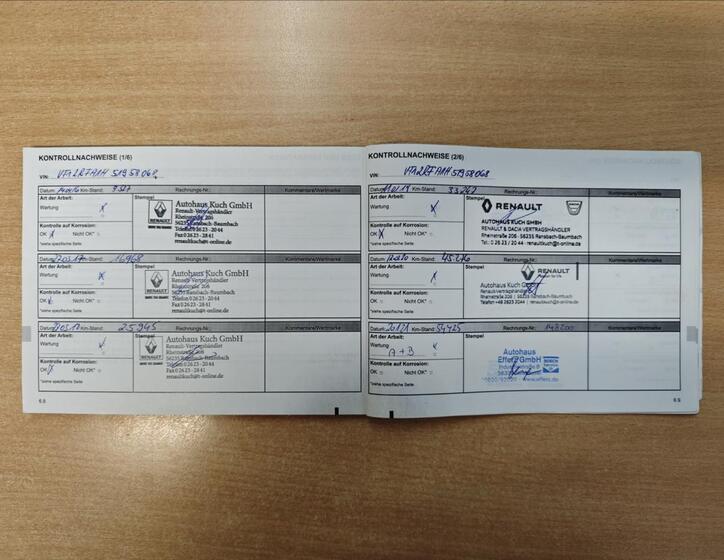 KONTROLLNACHWEISE (1/6)
VIN:
Datum: Km-Stand: Rechnungs-Nr.: Kommentare/Wertmarke
Art der Arbeit: Stempel
Wartung X
RENAULT
Autohaus Kuch GmbH
Renault-Vertragshändler
56235 Ransbach-Baumbach
Telefon 0 26 23 - 20 44
Fax 0 26 23 - 28 41
renaultkuch@t-online.de
Kontrolle auf Korrosion:
OK X Nicht OK*
*siehe spezifische Seite
Datum: Km-Stand: 16968 Rechnungs-Nr.: Kommentare/Wertmarke
Art der Arbeit: Stempel
Wartung X
RENAULT
Autohaus Kuch GmbH
Renault-Vertragshändler
Rheinstraße 206
56235 Ransbach-Baumbach
Telefon 0 26 23 - 20 44
Fax 0 26 23 - 28 41
renaultkuch@t-online.de
Kontrolle auf Korrosion:
OK Nicht OK*
*siehe spezifische Seite
Datum: Km-Stand: 25945 Rechnungs-Nr.: Kommentare/Wertmarke
Art der Arbeit: Stempel
Wartung
RENAULT
Autohaus Kuch GmbH
Renault-Vertragshändler
56235 Ransbach-Baumbach
Telefon 0 26 23 - 20 44
Fax 0 26 23 - 28 41
renaultkuch@t-online.de
Kontrolle auf Korrosion:
OK X Nicht OK*
*siehe spezifische Seite
6.8
KONTROLLNACHWEISE (2/6)
VIN:
Datum: Km-Stand: 33247 Rechnungs-Nr.: Kommentare/Wertmarke
Art der Arbeit: Stempel
Wartung X
RENAULT
AUTOHAUS KUCH GMBH
RENAULT & DACIA VERTRAGSHÄNDLER
Rheinstraße 206 · 56235 Ransbach-Baumbach
Tel.: 0 26 23 / 20 44 · renaultkuch@t-online.de
Kontrolle auf Korrosion:
OK X Nicht OK*
*siehe spezifische Seite
Datum: Km-Stand: 45276 Rechnungs-Nr.: Kommentare/Wertmarke
Art der Arbeit: Stempel
Wartung
RENAULT
Autohaus Kuch GmbH
Renault Vertragshändler
Rheinstraße 206 56235 Ransbach-Baumbach
renaultkuch@t-online.de
Kontrolle auf Korrosion:
OK Nicht OK*
*siehe spezifische Seite
Datum: Km-Stand: 54425 Rechnungs-Nr.:
Art der Arbeit: Stempel
Wartung
A + B
Autohaus
Effetz GmbH
www.effetz.de
Kontrolle auf Korrosion:
OK Nicht OK*
*siehe spezifische Seite
6.9